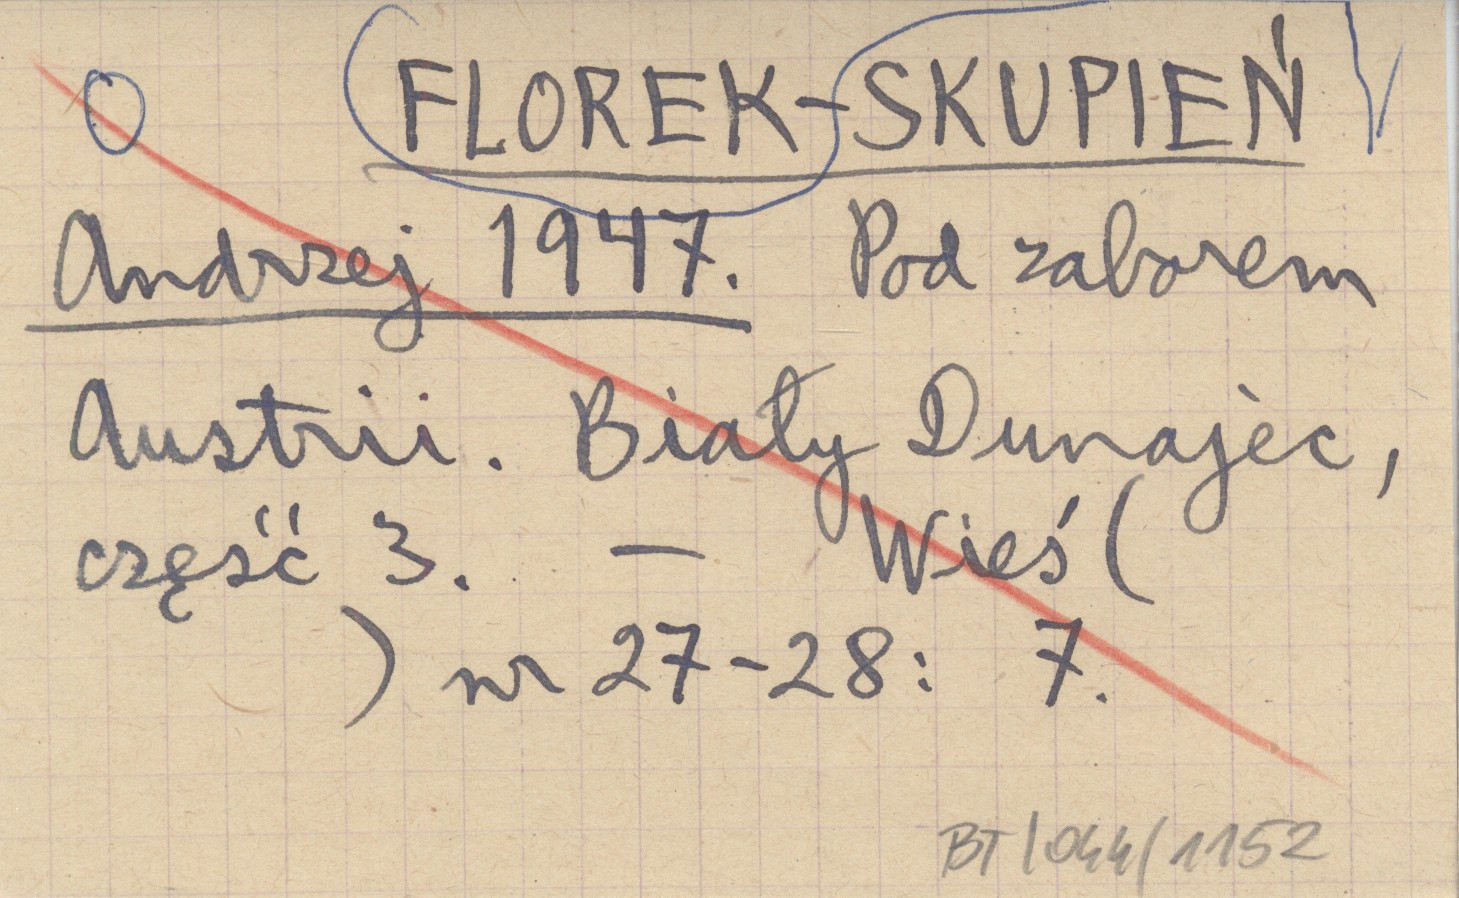 FLOREK-SKUPIEŃ
Andrzej 1947. Pod zaborem
Austrii. Biały Dunajec,
część 3. — Wieś (
) nr 27-28: 7.
BT/044/1152